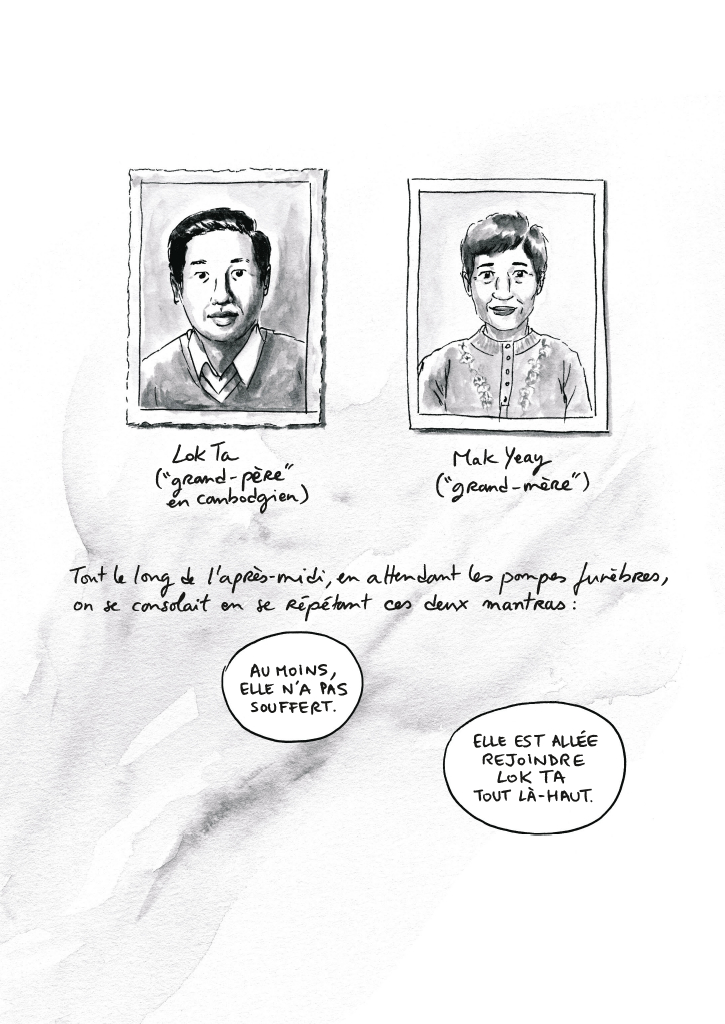 Lok Ta
("grand-père"
en cambodgien)
Mak Yeay
("grand-mère")
Tout le long de l'après-midi, en attendant les pompes funèbres,
on se consolait en se répétant ces deux mantras :
AU MOINS,
ELLE N'A PAS
SOUFFERT.
ELLE EST ALLÉE
REJOINDRE
LOK TA
TOUT LÀ-HAUT.